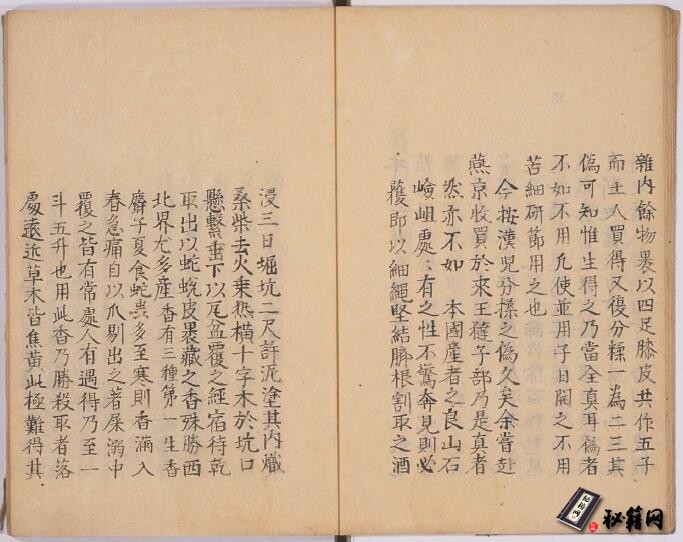 雜内餘物裹以四足膝皮共作五子
而土人買得又復分糅一為二三其
偽可知惟生得之乃當全真耳偽者
不如不用凡使並用子日開之不用
苦細研篩用之也
今按漢兒分揉之偽久矣余嘗赴
燕京收買於來王㺚子部乃是真者
然亦不如 本國產者之良山石
嶮岨處々有之性不驚奔見則必
獲即以細繩堅結臍根割取之酒
浸三日堀坑二尺許泥塗其内熾
桑柴去火乗熱横十字木於坑口
懸繫垂下以瓦盆覆之經宿待乾
取出以蛇蛻皮裹藏之香殊勝西
北界尤多産香有三種第一生香
麝子夏食蛇蟲多至寒則香滿入
春急痛自以爪剔出之著屎溺中
覆之皆有常處人有遇得乃至一
斗五升也用此香乃勝殺取者落
處遠近草木皆焦黄此極難得其
秘籍网
秘籍网